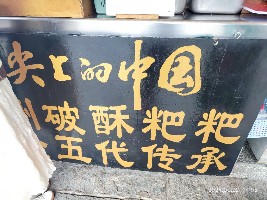 尖上的中国
破酥粑粑
五代传承